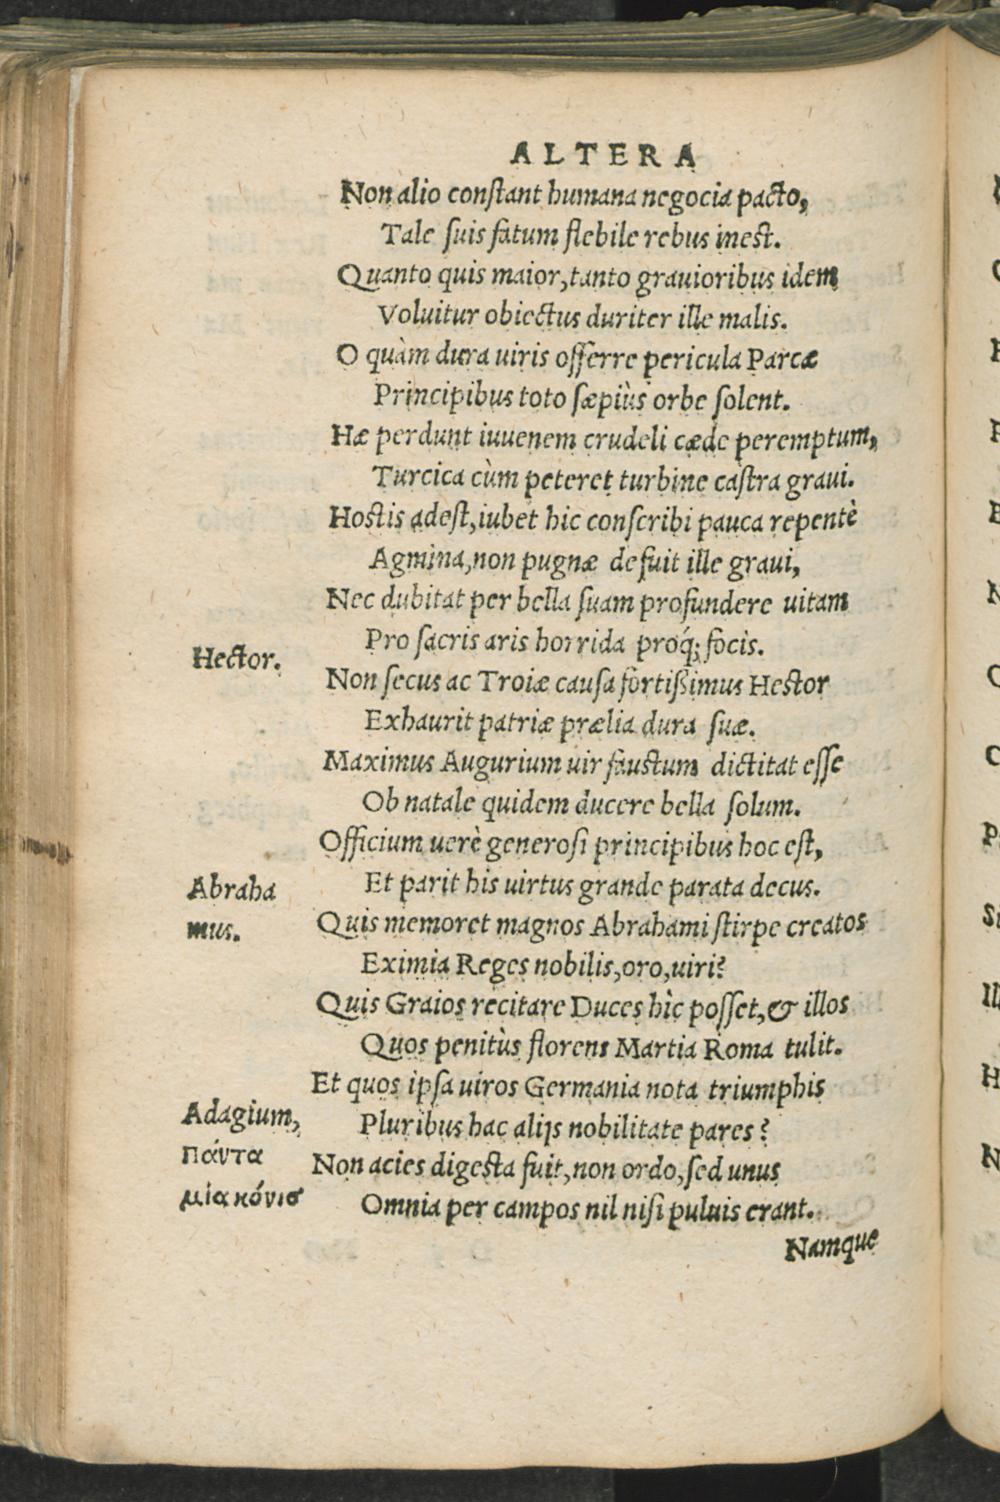 ALTERA
Non alio conſtant humana negocia pacto,
Tale ſuis fatum flebile rebus ineſt.
Quanto quis maior, tanto grauioribus idem
Voluitur obiectus duriter ille malis.
O quàm dura uiris offerre pericula Parcæ
Principibus toto ſæpiùs orbe ſolent.
Hæ perdunt iuuenem crudeli cæde peremptum,
Turcica cùm peteret turbine caſtra graui.
Hostis adeſt, iubet hic conſcribi pauca repentè
Agmina, non pugnæ defuit ille graui,
Nec dubitat per bella ſuam profundere uitam
Pro ſacris aris horrida proq́; focis.
Hector.
Non ſecus ac Troiæ cauſa fortiſsimus Hector
Exhaurit patriæ prælia dura ſuæ.
Maximus Augurium uir fauſtum dictitat eſſe
Ob natale quidem ducere bella ſolum.
Officium uerè generoſi principibus hoc eſt,
Et parit his uirtus grande parata decus.
Abraha
mus.
Quis memoret magnos Abrahami ſtirpe creatos
Eximia Reges nobilis, oro, uiri?
Quis Graios recitare Duces hìc poſſet, & illos
Quos penitùs florens Martia Roma tulit.
Et quos ipſa uiros Germania nota triumphis
Pluribus hac alijs nobilitate pares?
Adagium,
πάντα
μία κόνισ
Non acies digeſta fuit, non ordo, ſed unus
Omnia per campos nil niſi puluis erant.
Namque